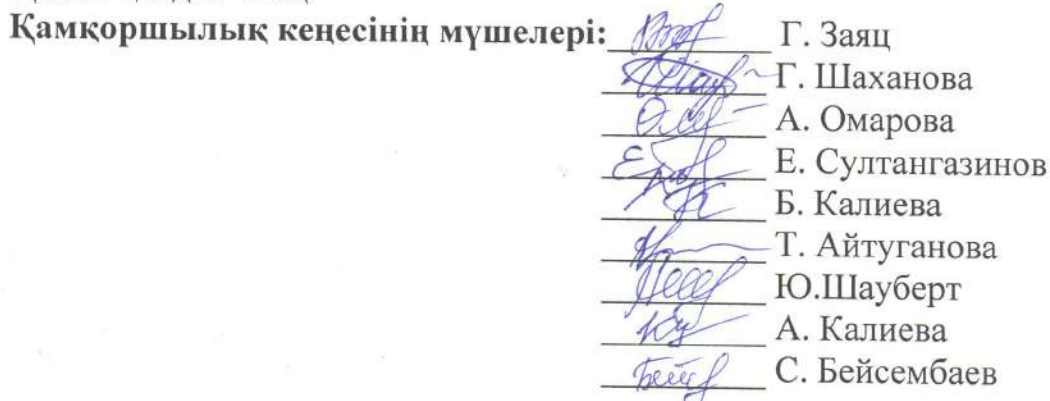 Қамқоршылық кеңесінің мүшелері: Г. Заяц
Г. Шаханова
А. Омарова
Е. Султангазинов
Б. Калиева
Т. Айтуганова
Ю.Шауберт
А. Калиева
С. Бейсембаев